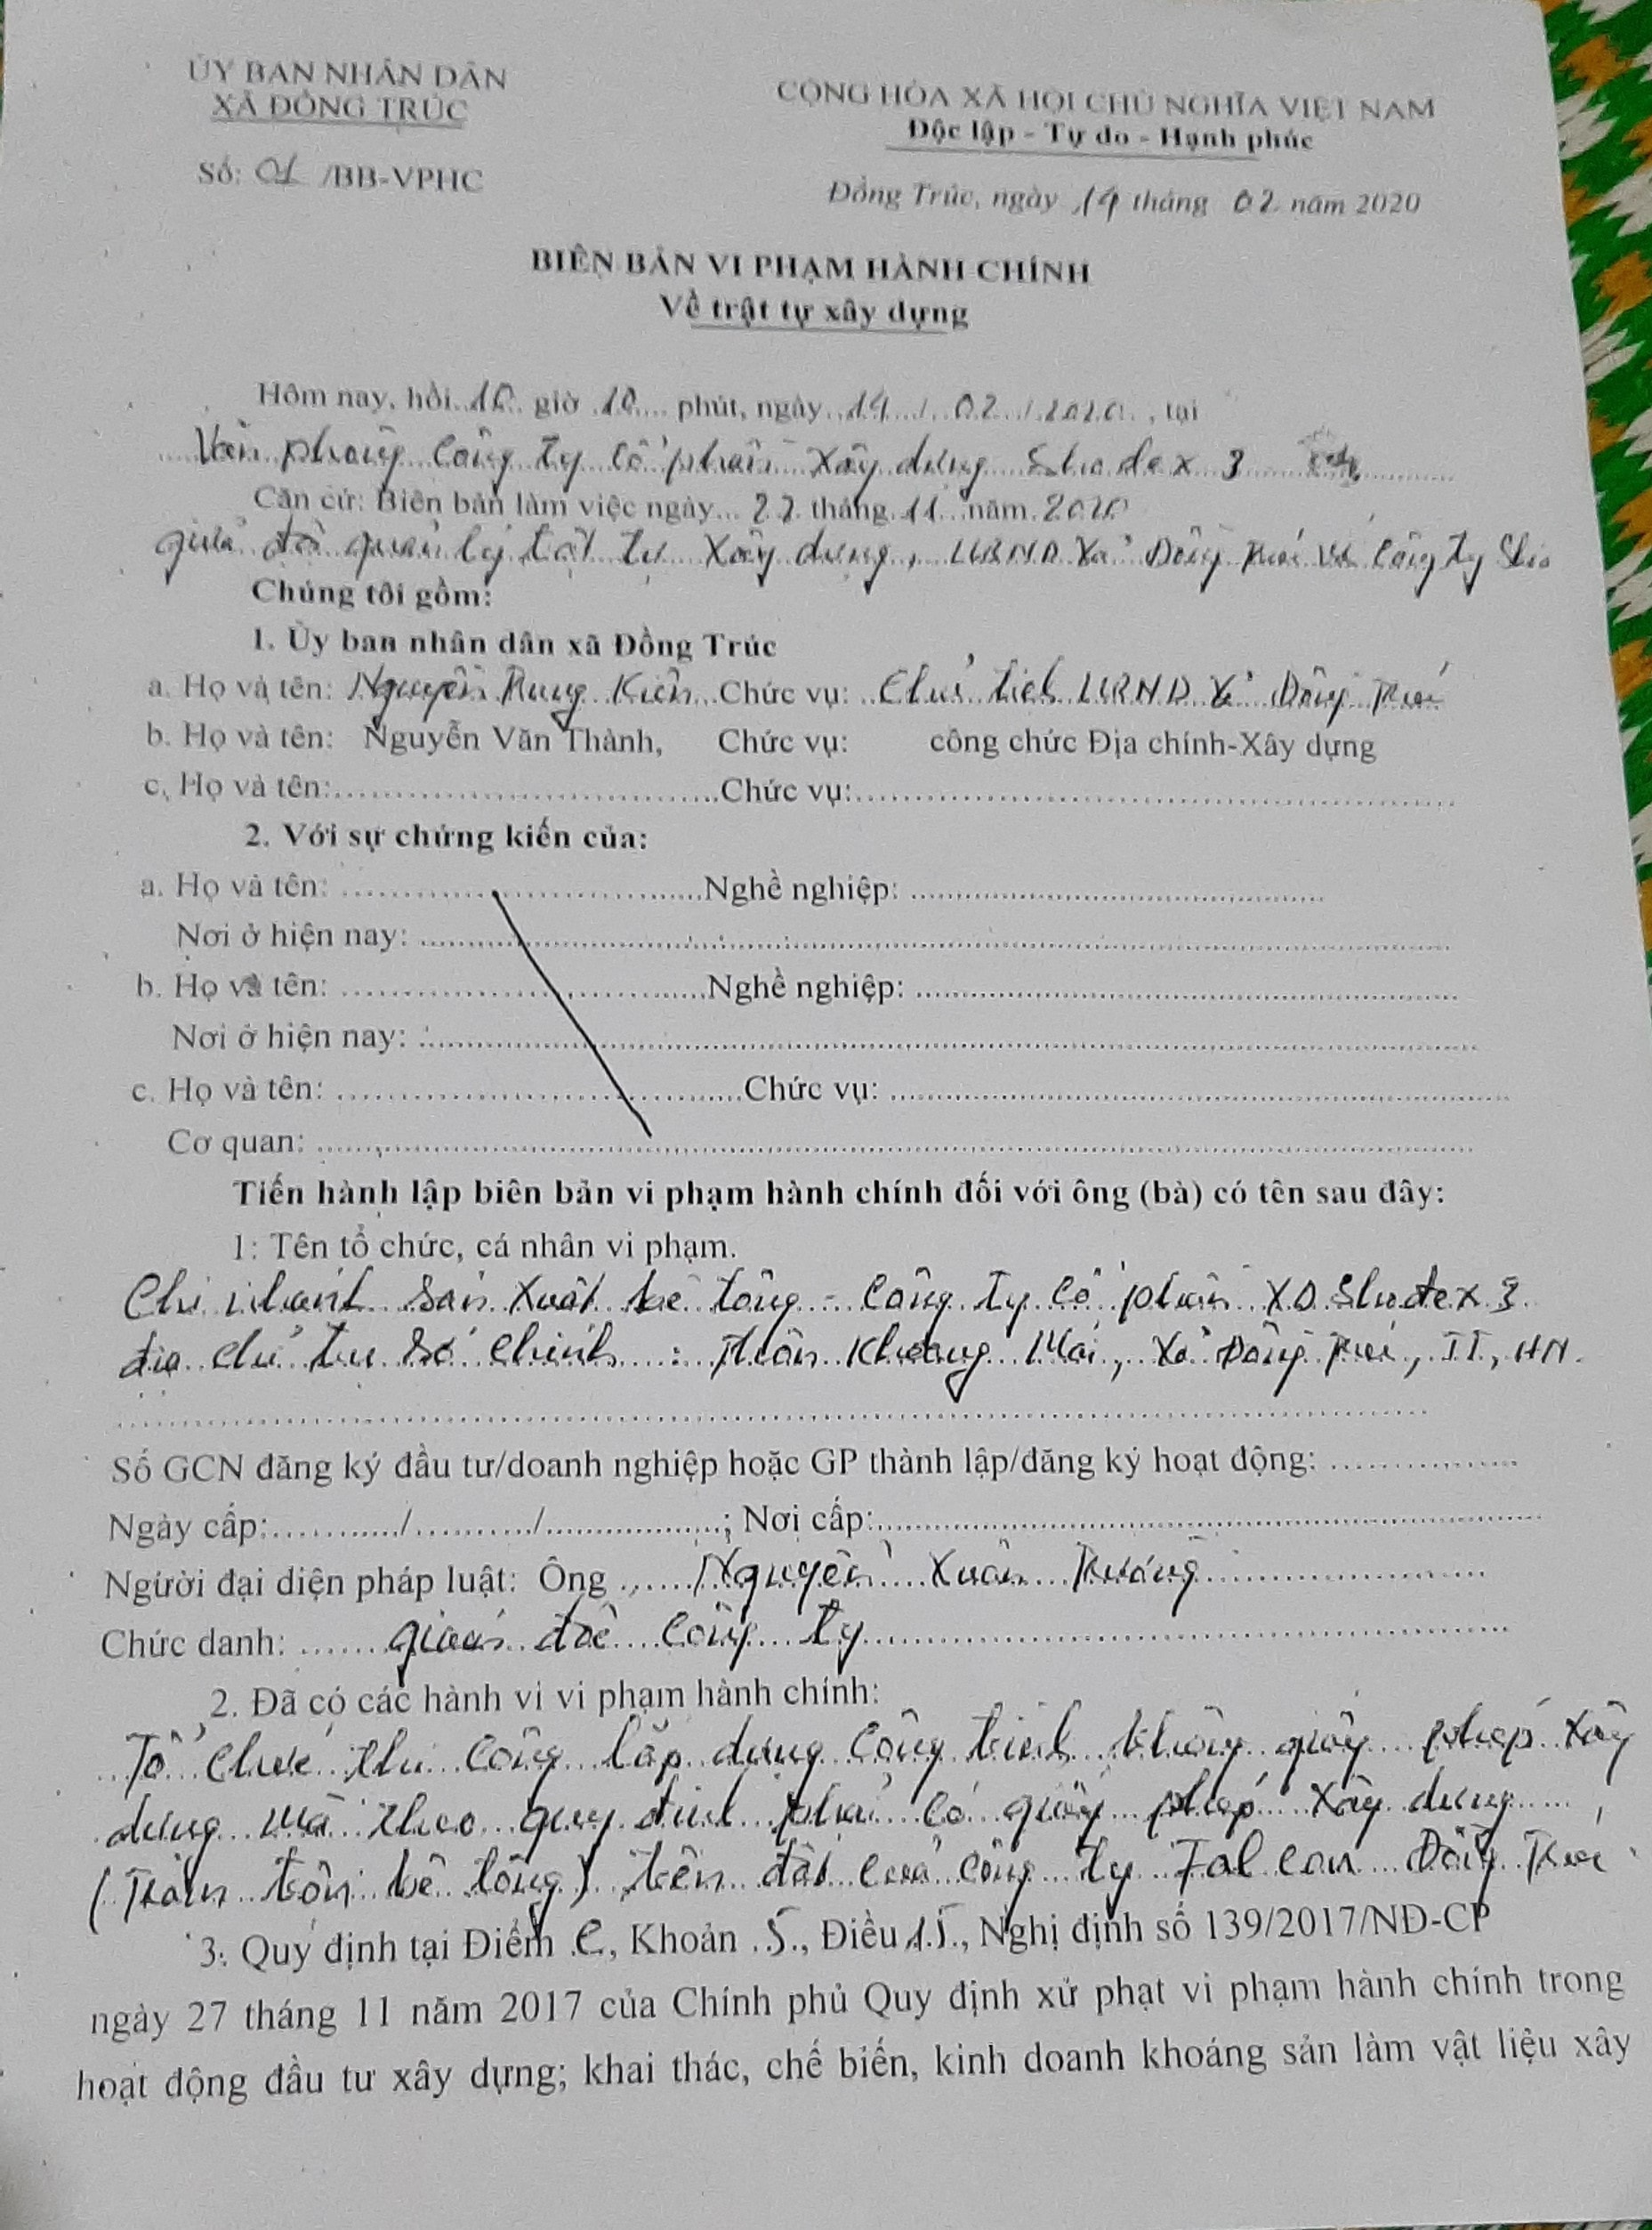 ỦY BAN NHÂN DÂN
XÃ ĐỒNG TRÚC
CỘNG HÒA XÃ HỘI CHỦ NGHĨA VIỆT NAM
Độc lập - Tự do - Hạnh phúc
Số: 01 /BB-VPHC
Đồng Trúc, ngày 14 tháng 02 năm 2020
BIÊN BẢN VI PHẠM HÀNH CHÍNH
Về trật tự xây dựng
Hôm nay, hồi 10 giờ 10 phút, ngày 14 / 02 / 2020, tại
Văn phòng Công ty Cổ phần Xây dựng Studex 3
Căn cứ: Biên bản làm việc ngày 22 tháng 11 năm 2020
giữa đội quản lý trật tự xây dựng, UBND xã Đồng Trúc và Công ty Stu
Chúng tôi gồm:
1. Ủy ban nhân dân xã Đồng Trúc
a. Họ và tên: Nguyễn Trung Kiên Chức vụ: Chủ tịch UBND xã Đồng Trúc
b. Họ và tên: Nguyễn Văn Thành, Chức vụ: công chức Địa chính-Xây dựng
c. Họ và tên: Chức vụ:
2. Với sự chứng kiến của:
a. Họ và tên: Nghề nghiệp:
Nơi ở hiện nay:
b. Họ và tên: Nghề nghiệp:
Nơi ở hiện nay:
c. Họ và tên: Chức vụ:
Cơ quan:
Tiến hành lập biên bản vi phạm hành chính đối với ông (bà) có tên sau đây:
1: Tên tổ chức, cá nhân vi phạm.
Chi nhánh sản xuất bê tông - Công ty Cổ phần XD Studex 3
địa chỉ trụ sở chính : Thôn Khoang Mái, xã Đồng Trúc, TT, HN.
Số GCN đăng ký đầu tư/doanh nghiệp hoặc GP thành lập/đăng ký hoạt động:
Ngày cấp: / / ; Nơi cấp:
Người đại diện pháp luật: Ông Nguyễn Xuân Trường
Chức danh: giám đốc Công ty
2. Đã có các hành vi vi phạm hành chính:
Tổ chức thi công lắp dựng công trình không giấy phép xây
dựng mà theo quy định phải có giấy phép xây dựng
(Trạm trộn bê tông) trên đất của công ty Falcon Đồng Trúc
3. Quy định tại Điểm C, Khoản 5, Điều 15, Nghị định số 139/2017/NĐ-CP
ngày 27 tháng 11 năm 2017 của Chính phủ Quy định xử phạt vi phạm hành chính trong
hoạt động đầu tư xây dựng; khai thác, chế biến, kinh doanh khoáng sản làm vật liệu xây